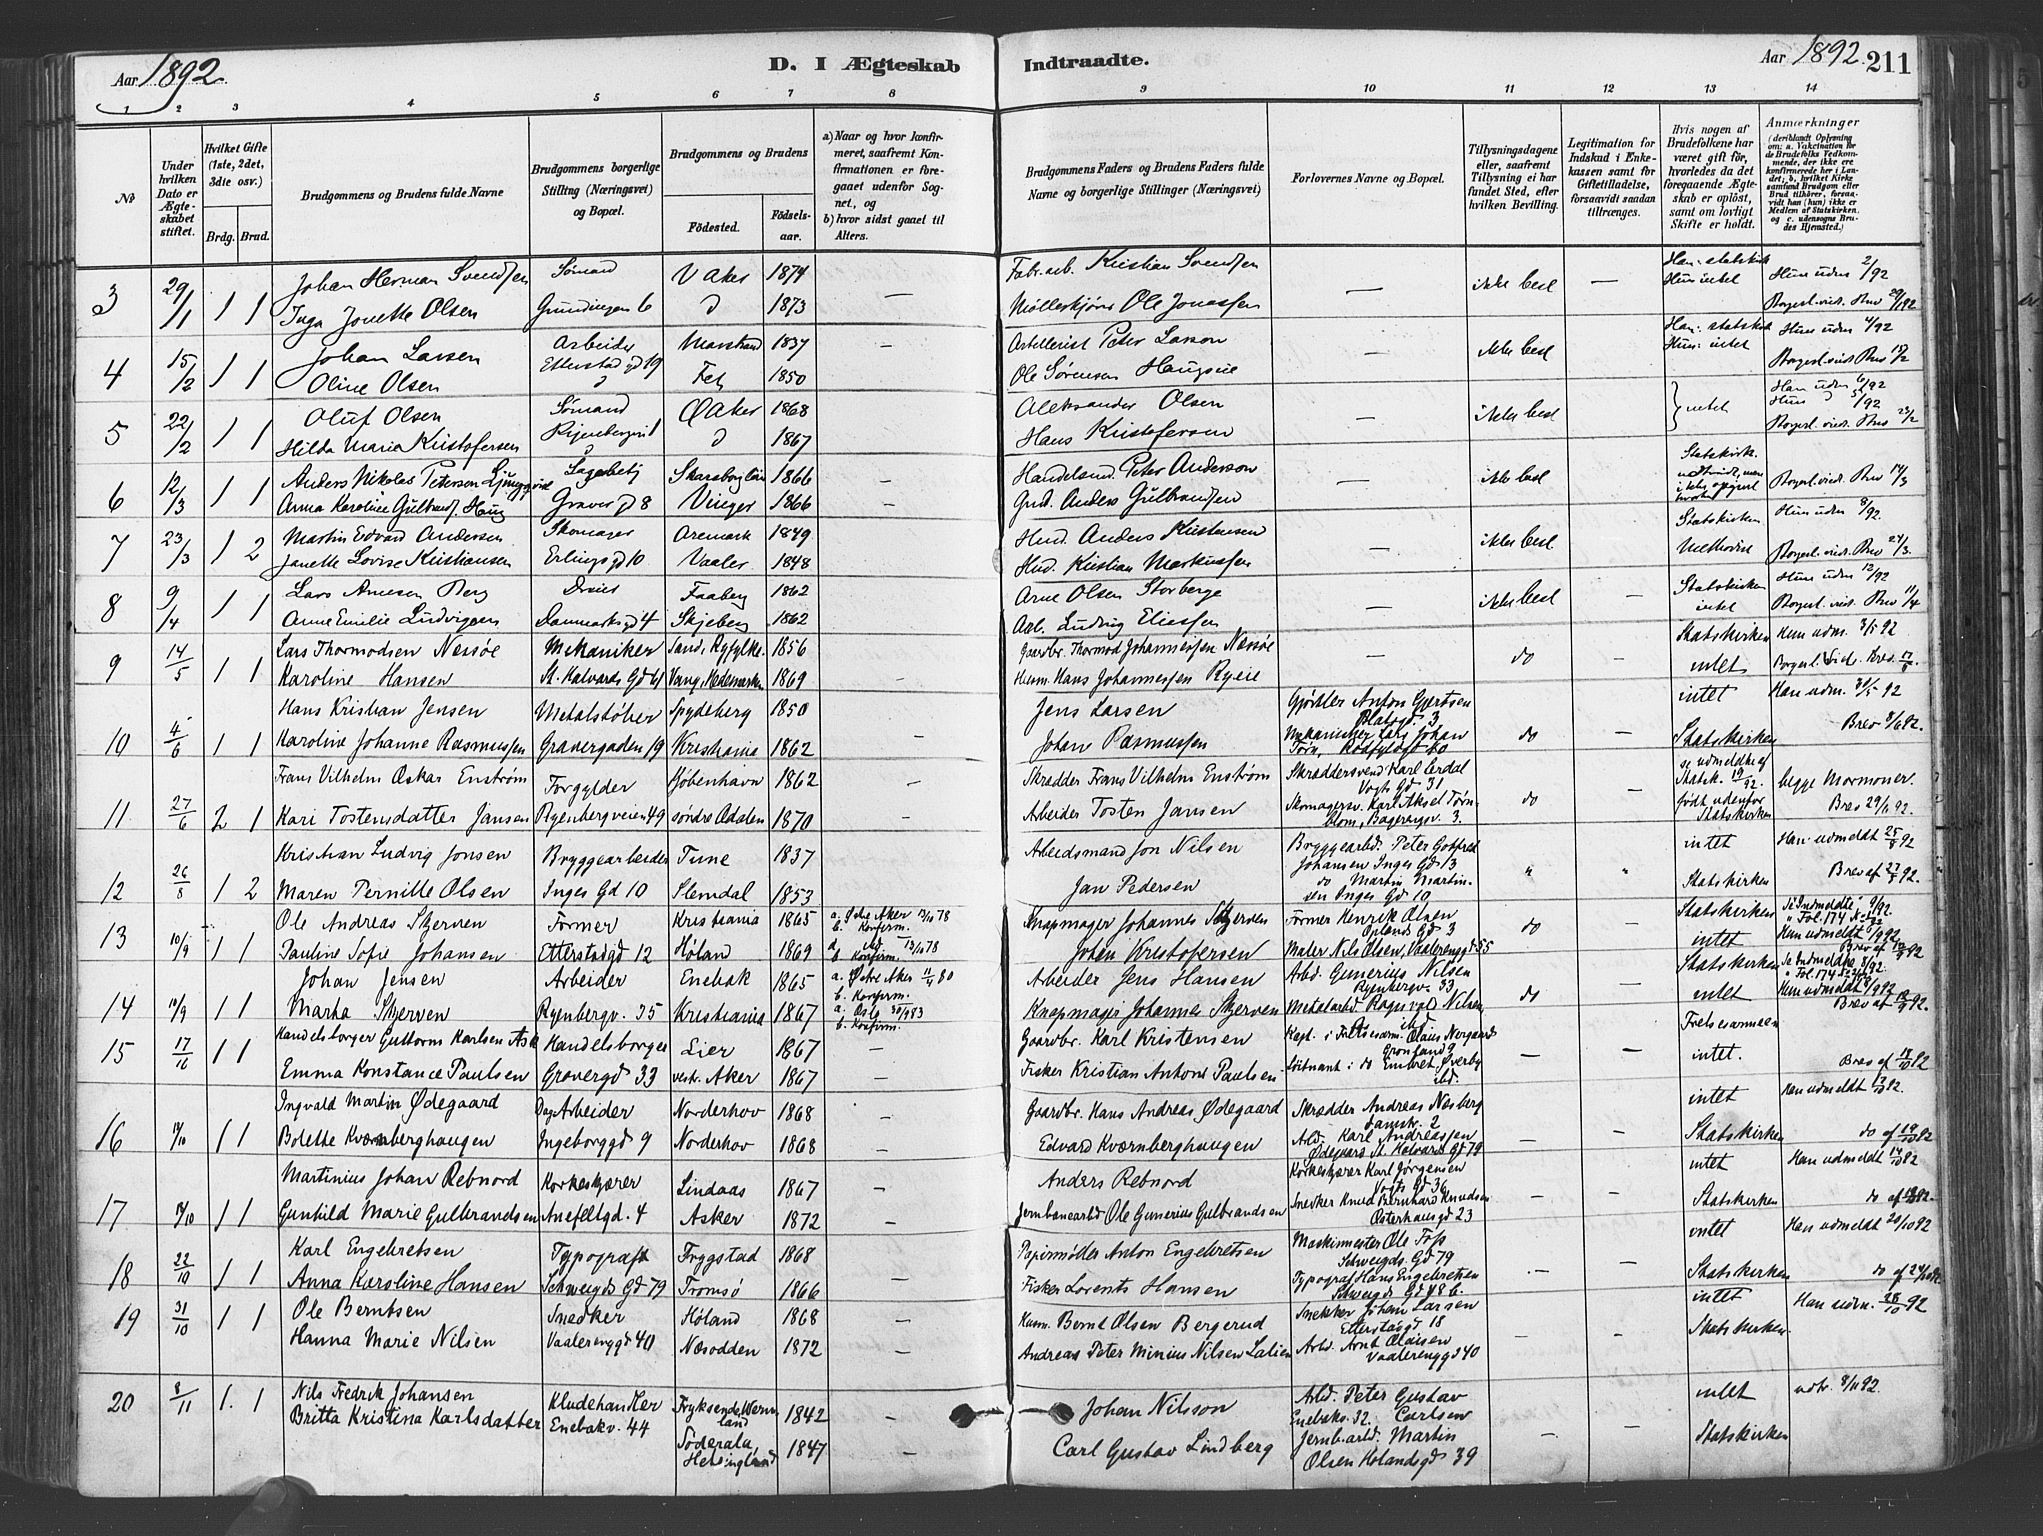 Aar 1892. D. I Ægteskab Indtraadte. Aar 1892. 211
1 2 3 4 5 6 7 8 9 10 11 12 13 14
No
Under hvilken Dato er Ægteskabet stiftet.
Hvilket Gifte (1ste, 2det, 3die osv.)
Brdg. Brud.
Brudgommens og Brudens fulde Navne
Brudgommens borgerlige Stilling (Næringsvei) og Bopæl.
Brudgommens og Brudens
Fødested. Fødselsaar.
a) Naar og hvor konfirmeret, saafremt Konfirmationen er foregaaet udenfor Sognet, og
b) hvor sidst gaaet til Alters.
Brudgommens Faders og Brudens Faders fulde Navne og borgerlige Stillinger (Næringsvei)
Forlovernes Navne og Bopæl.
Tillysningsdagene eller, saafremt Tillysning ei har fundet Sted, efter hvilken Bevilling.
Legitimation for Indskud i Enkekassen samt for Giftetilladelse, forsaavidt saadan tiltrænges.
Hvis nogen af Brudefolkene har været gift før, hvorledes da det foregaaende Ægteskab er opløst, samt om lovligt Skifte er holdt.
Anmærkninger
3 29/1 1 1 Johan Herman Svendsen Sømand Vaker 1874 — Fabr.arb. Kristian Svendsen — ikke besl — Han: statskirk Hun uden 2/92
Inga Jonette Olsen Grundingen 6 d 1873 Møllekjører Ole Jonassen Hun intet Borgerl. vied. Brev 29/1 92
4 15/2 1 1 Johan Larsen Arbeider Marstrand 1837 — Artillerist Peter Larson — ikke besl Han: statskirk Hun uden 4/92
Oline Olsen Etterstadgd 19 Fet 1850 Ole Sørensen Haugsie Hun: intet Borgerl. vied. Brev 15/2
5 22/2 1 1 Oluf Olsen Sømand Ø Aker 1868 — Aleksander Olsen — ikke besl intet Han uden 6/92
Hilda Marie Kristofersen d 1867 Hans Kristofersen Hun d 5/92
Borgerl. vied. Brev 22/2
6 12/3 1 1 Anders Nikolas Peterson Ljungqvist Sagarbej Skaraborg län 1866 Handelsmd. Peter Anderson — ikke besl Statskirk.
Anna Karoline Gulbrands. Haug Graver gd 8 Vinger 1866 — Gmd. Anders Gulbrandsen Borgerl. vied. Brev 14/3
7 23/3 1 2 Martin Edvard Andersen Skomager Aremark 1849 — Hmd. Anders Kristensen — ikke besl — Statskirken Hun uden 8/92
Janette Lovise Kristiansen Erlings gd 10 Vaaler 1848 Hmd. Kristian Markussen Methodist Borgerl. vied. Brev 24/3
8 9/4 1 1 Lars Arnesen Berg Faaberg 1862 Arne Olsen Storberge — ikke besl — Statskirken Hun uden 12/92
Anne Emilie Ludvigsen Danmarks gd 4 Skjeberg 1862 Arb. Ludvig Eliesen intet Borgerl. vied. Brev 11/4
9 14/5 1 1 Lars Thormodsen Nessøe Mekaniker Sand, Ryfylke. 1856 Gaardbr. Thormod Johannessen Nessøe — do — Statskirken Hun udm. 3/5 92
Karoline Hansen St. Halvards Gd 61 Vang, Hedemarken 1869 Husm. Hans Johannessen Ryeie intet Borgerl. Vied. Brev.
10 4/6 1 1 Hans Kristian Jensen Metalstøber Spydeberg 1850 — Jens Larsen Gjørtler Anton Gjertsen do — intet Han udm. 31/5 92
Platougd. 3
Karoline Johanne Rasmussen Gravergaden 19 Kristiania 1862 Johan Rasmussen Mekaniker Lars Johan Statskirken Brev 3/6 92.
Törn, Rødfyldgt 60
11 27/6 2 1 Frans Vilhelm Oskar Enström Forgylder Kjöbenhavn 1862 — Skrædder Frans Vilhelm Enström Skræddersvend Karl Lerdal do — se udmeldte af Statsk. 19/92. begge Mormoner.
Vogts Gd 31
Kari Tostensdatter Jansen Ryenbergveien 49 søndre Odalen 1870 Arbeider Tosten Jansen Skomagersv. Karl Aksel Törnblom, Bagerengv. 3. født udenfor Statskirken Brev 29/6 92.
12 26/8 1 2 Kristian Ludvig Jonsen Bryggearbeider Tune 1837 — Arbeidsmand Jon Nilsen Bryggearbd. Peter Gotfred " " intet Han udmeldt 25/8 92
Johansen Inges Gd 13
Maren Pernille Olsen Inges Gd 10 Slemdal 1853 Jan Pedersen do Martin Martinsen Inges Gd 10 Statskirken Brev af 27/8 92.
13 10/9 1 1 Ole Andreas Skjerven Former Kristiania 1865 a. Østre Aker 13/10 78 Knapmager Johannes Skjerven Former Henrik Olsen do — Statskirken Se Indmeldte 9/92.
b. Konfirm. Oplands Gd 3 " Fol. 174 N
Pauline Sofie Johansen Etterstadgd 12 Høland 1869 a. ibd. 13/10 78 Johan Kristofersen Maler Nils Olsen, Vaalerenggd 55 intet Han udmeldt 6/9 92
b. Konfirm. Brev af
14 10/9 1 1 Johan Jensen Arbeider Enebak 1865 a. Østre Aker 11/4 80 Arbeider Jens Hansen Arbd. Gunerius Nilsen do — Statskirken Se Indmeldte 8/92.
b. Konfirm. Ryenbergv. 33 " Fol. 174
Marta Skjerven Ryenbergv. 35 Kristiania 1867 a. Oslo 30/9 83 Knapmager Johannes Skjerven Metalarbd Ragnvald Nilsen, ibd. intet Han udmeldt 8/9 92
b. Konfirm. Brev af 10/9 92.
15 17/10 1 1 Handelsborger Guttorm Karlsen Ask Handelsborger Lier 1867 — Gaardbr. Karl Kristensen Kapt. i Frelsesarm. Olaus Nergaard — — Frelsesarmeen
Grønland 9
Emma Konstance Paulsen Gravergd 33 vest. Aker 1867 Fisker Kristian Antoni Paulsen Löitnant i do Embret Øverby ibd. intet. Brev af 14/10 92
16 14/10 1 1 Ingvald Martin Ødegaard Dag Arbeider Norderhov 1868 — Gaardbr. Hans Andreas Ødegaard Skrædder Andreas Næsberg — — intet Han udmeldt 13/10 92.
Damstr. 2
Bolette Kværnberghaugen Ingeborggd 9 Norderhov 1868 Edvard Kværnberghaugen Arbd. Karl Andreassen Statskirken do af 14/10 92
Ødegaard St. Halvards Gd 79
17 17/10 1 1 Martinius Johan Rebnord Korkeskjærer Lindaas 1867 — Anders Rebnord Korkeskjærer Karl Jørgensen — — intet Han udmeldt 14/10 92
Vogts Gd 36
Gunhild Marie Gulbrandsen Anefeltgd. 4 Asker 1872 Jernbanearbd Ole Gunerius Gulbrandsen Snedker Knud Bernhard Knudsen Statskirken do af
Østerhausgd 23
18 22/10 1 1 Karl Engebretsen Typograf Tryggstad 1868 — Papirmøller Anton Engebretsen Maskinmester Ole Foss — — intet Han udmeldt 20/10 92
Schweigds Gd 79
Anna Karoline Hansen Schweigds Gd 79 Tromsø 1866 Fisker Lorents Hansen Typograf Hans Engebretsen Statskirken do af 24/10 92
Schweigds Gd 48 b.
19 31/10 1 1 Ole Berntsen Snedker Høland 1868 — Husm. Bernt Olsen Bergerud Snekker Johan Larsen — — intet Han udm. 28/10 92
Etterstadgd 18
Hanna Marie Nilsen Vaalerenggd 40 Næsodden 1872 Andreas Peter Minius Nilsen Lalien Arbd. Arnt Olaisen Statskirken.
Vaalerenggd 40
20 8/11 1. 1 Nils Fredrik Johansen Kludehandler Fryksende, Wermland 1842 — Johan Nilsson Arbd. Peter Gustav Carlsen — — intet udtr. 8/11 92.
Enebakv. 32.
Britta Kristina Karlsdatter Enebakv. 44 Söderala, Helsingland 1847 Carl Gustav Lindberg Jernb. arbd. Martin Statskirken
Olsen Hølandsgd 39